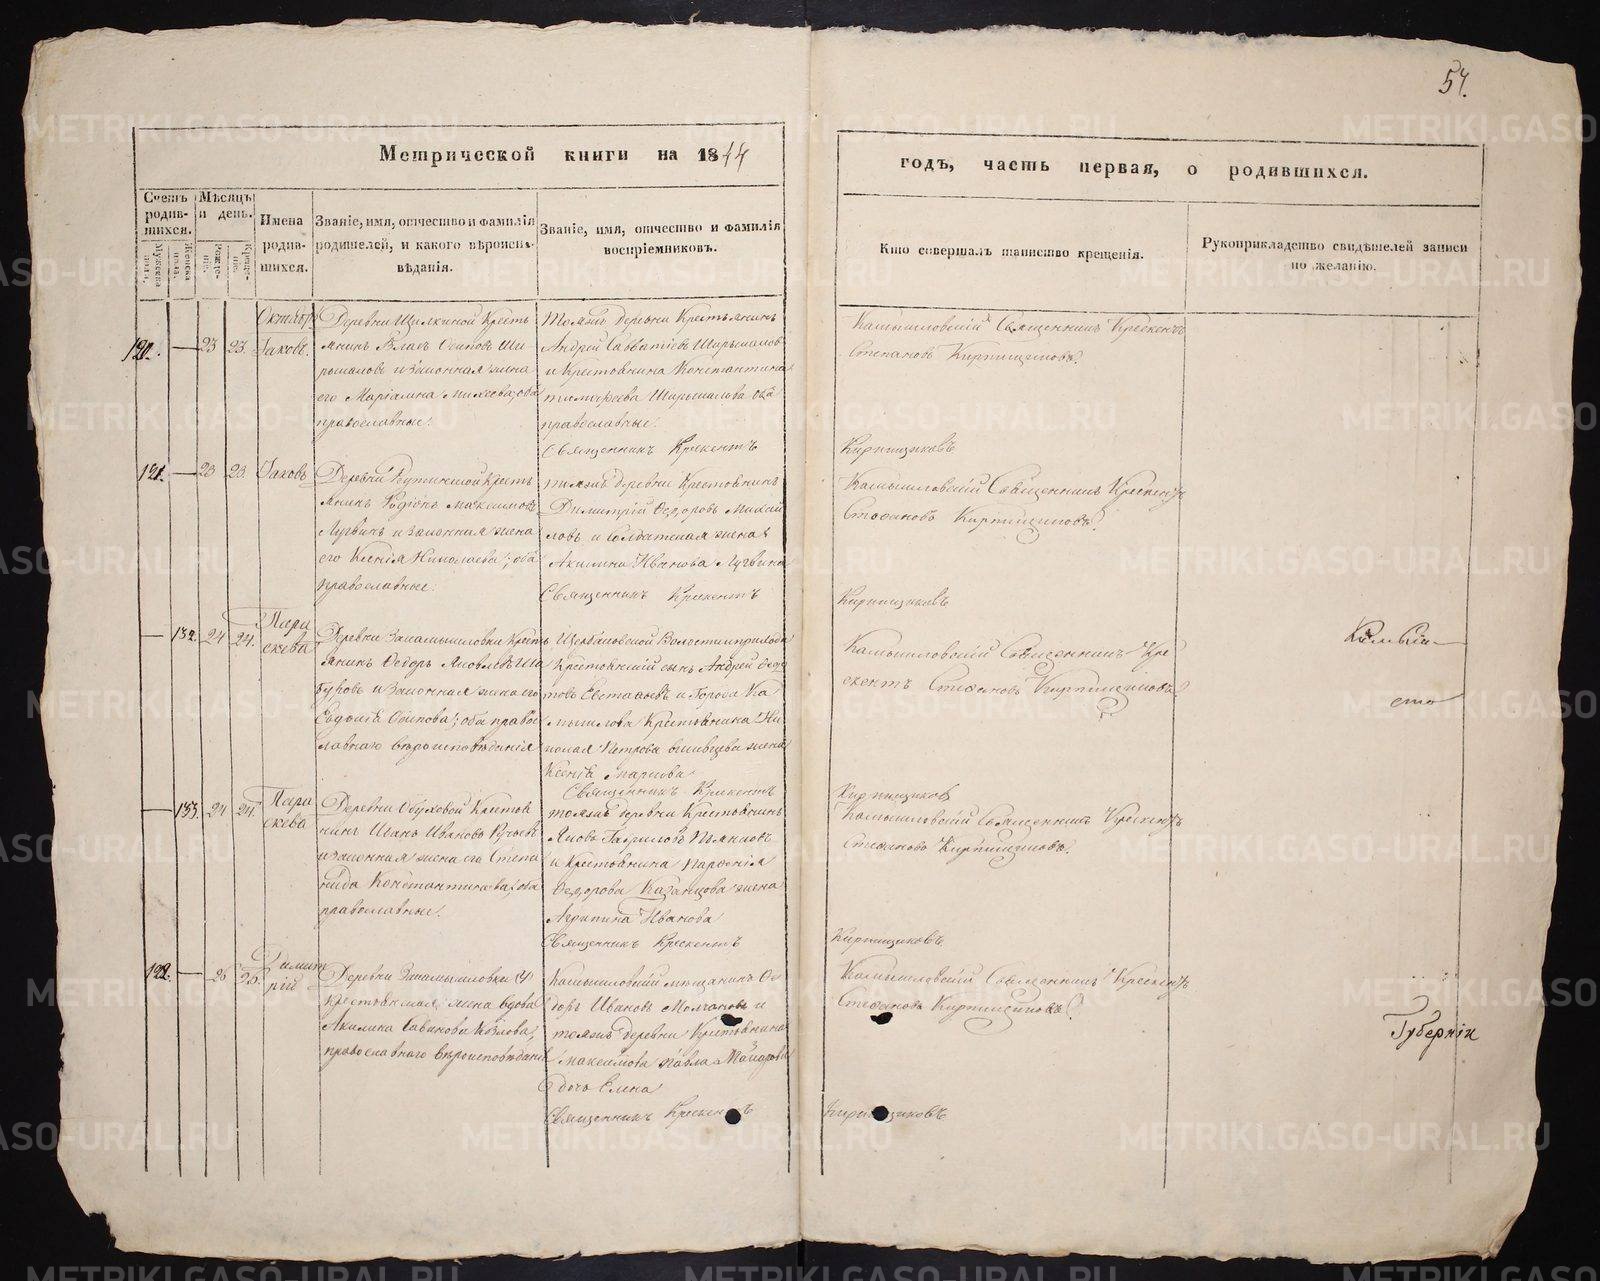 54.
Метрической книги на 1844
годъ, часть первая, о родившихся.
Счетъ родившихся.
Мужеска пола.
Женска пола.
Мѣсяцъ и день.
Рождение.
Крещение.
Имена родившихся.
Званіе, имя, отчество и фамилія родителей, и какого вѣроисповѣданія.
Званіе, имя, отчество и фамилія воспріемниковъ.
Кто совершалъ таинство крещенія.
Рукоприкладство свидѣтелей записи по желанію.
Октябрь
120. — 23 23. Іаковъ.
Деревни Щилкиной Кресть
янинъ Власъ Осиповъ Ши
рыкаловъ и законная жена
его Маріамна Михеева; оба
православные.
Томъже деревни Крестьянинъ
Андрей Савватіевъ Шарыкаловъ
и Крестьянина Константина
Тимофеева Шарыкалова оба
православные.
Священникъ Крискентъ
Камышловскій Священникъ Крескентъ
Стефановъ Кирпищиковъ.
Кирпищиковъ
121. — 23 23. Іаковъ
Деревни Бутинской Кресть
янинъ Родіонъ Максимовъ
Лугвинъ и законная жена
его Ксенія Николаева; оба
православные.
тояже деревни Крестьянинъ
Димитрій Федоровъ Михай
ловъ и солдатская жена
Акилина Иванова Лугвина
Священникъ Крискентъ
Камышловскій Священникъ Крескентъ
Стефановъ Кирпищиковъ.
Кирпищиковъ
— 132. 24 24. Пара
скева
Деревни Закамышловки Кресть
янинъ Федоръ Яковлевъ Ша
буровъ и законная жена его
Евдокія Осипова; оба право
славнаго вѣроисповѣданія
Щербаковской Волости и прихода
Крестьянскій сынъ Андрей Федо
товъ Евстафьевъ и Города Ка
мышлова Крестьянина Ни
колая Петрова жена
Ксенія Маркова
Священникъ Крискентъ
Камышловскій Священникъ Кре
скентъ Стефановъ Кирпищиковъ
Кирпищиковъ
— 133. 24 24. Пара
скева
Деревни Обуховой Крестья
нинъ Иванъ Ивановъ
и законная жена его Степа
нида Константинова; оба
православные.
тояже деревни Крестьянинъ
Яковъ Гавриловъ Пьянковъ
и Крестьянина Парфенія
Федорова Казанцова жена
Агрипина Иванова
Священникъ Крискентъ
Камышловскій Священникъ Крескентъ
Стефановъ Кирпищиковъ
Кирпищиковъ
122. — 26 26. Димит
рій
Деревни Закамышловки
крестьянская жена вдова
Акилина Савинова Козлова,
православнаго вѣроисповѣданія
Камышловскій мѣщанинъ Ѳе
доръ Ивановъ Молчановъ и
тояже деревни Крестьянина
Максимова Павла
дочь Елена
Священникъ Крискентъ
Камышловскій Священникъ Крескентъ
Стефановъ Кирпищиковъ
Кирпищиковъ
Губерніи
METRIKI.GASO-URAL.RU